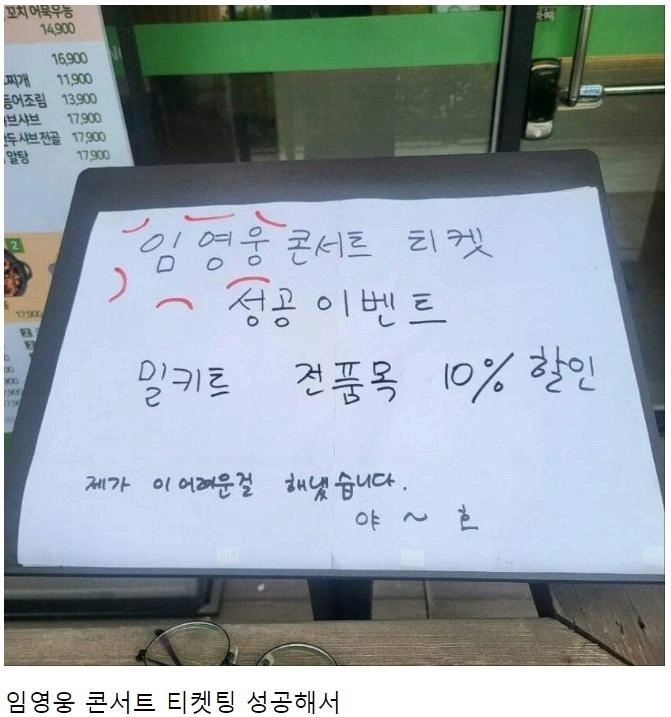 꼬치 어묵우동
14,900
16,900
찌개 11,900
등어조림 13,900
브샤브 17,900
만두샤브전골 17,900
알탕 17,900
2
17,900
임영웅 콘서트 티켓
성공 이벤트
밀키트 전품목 10% 할인
제가 이 어려운걸 해냈습니다.
야 ~ 호
임영웅 콘서트 티켓팅 성공해서